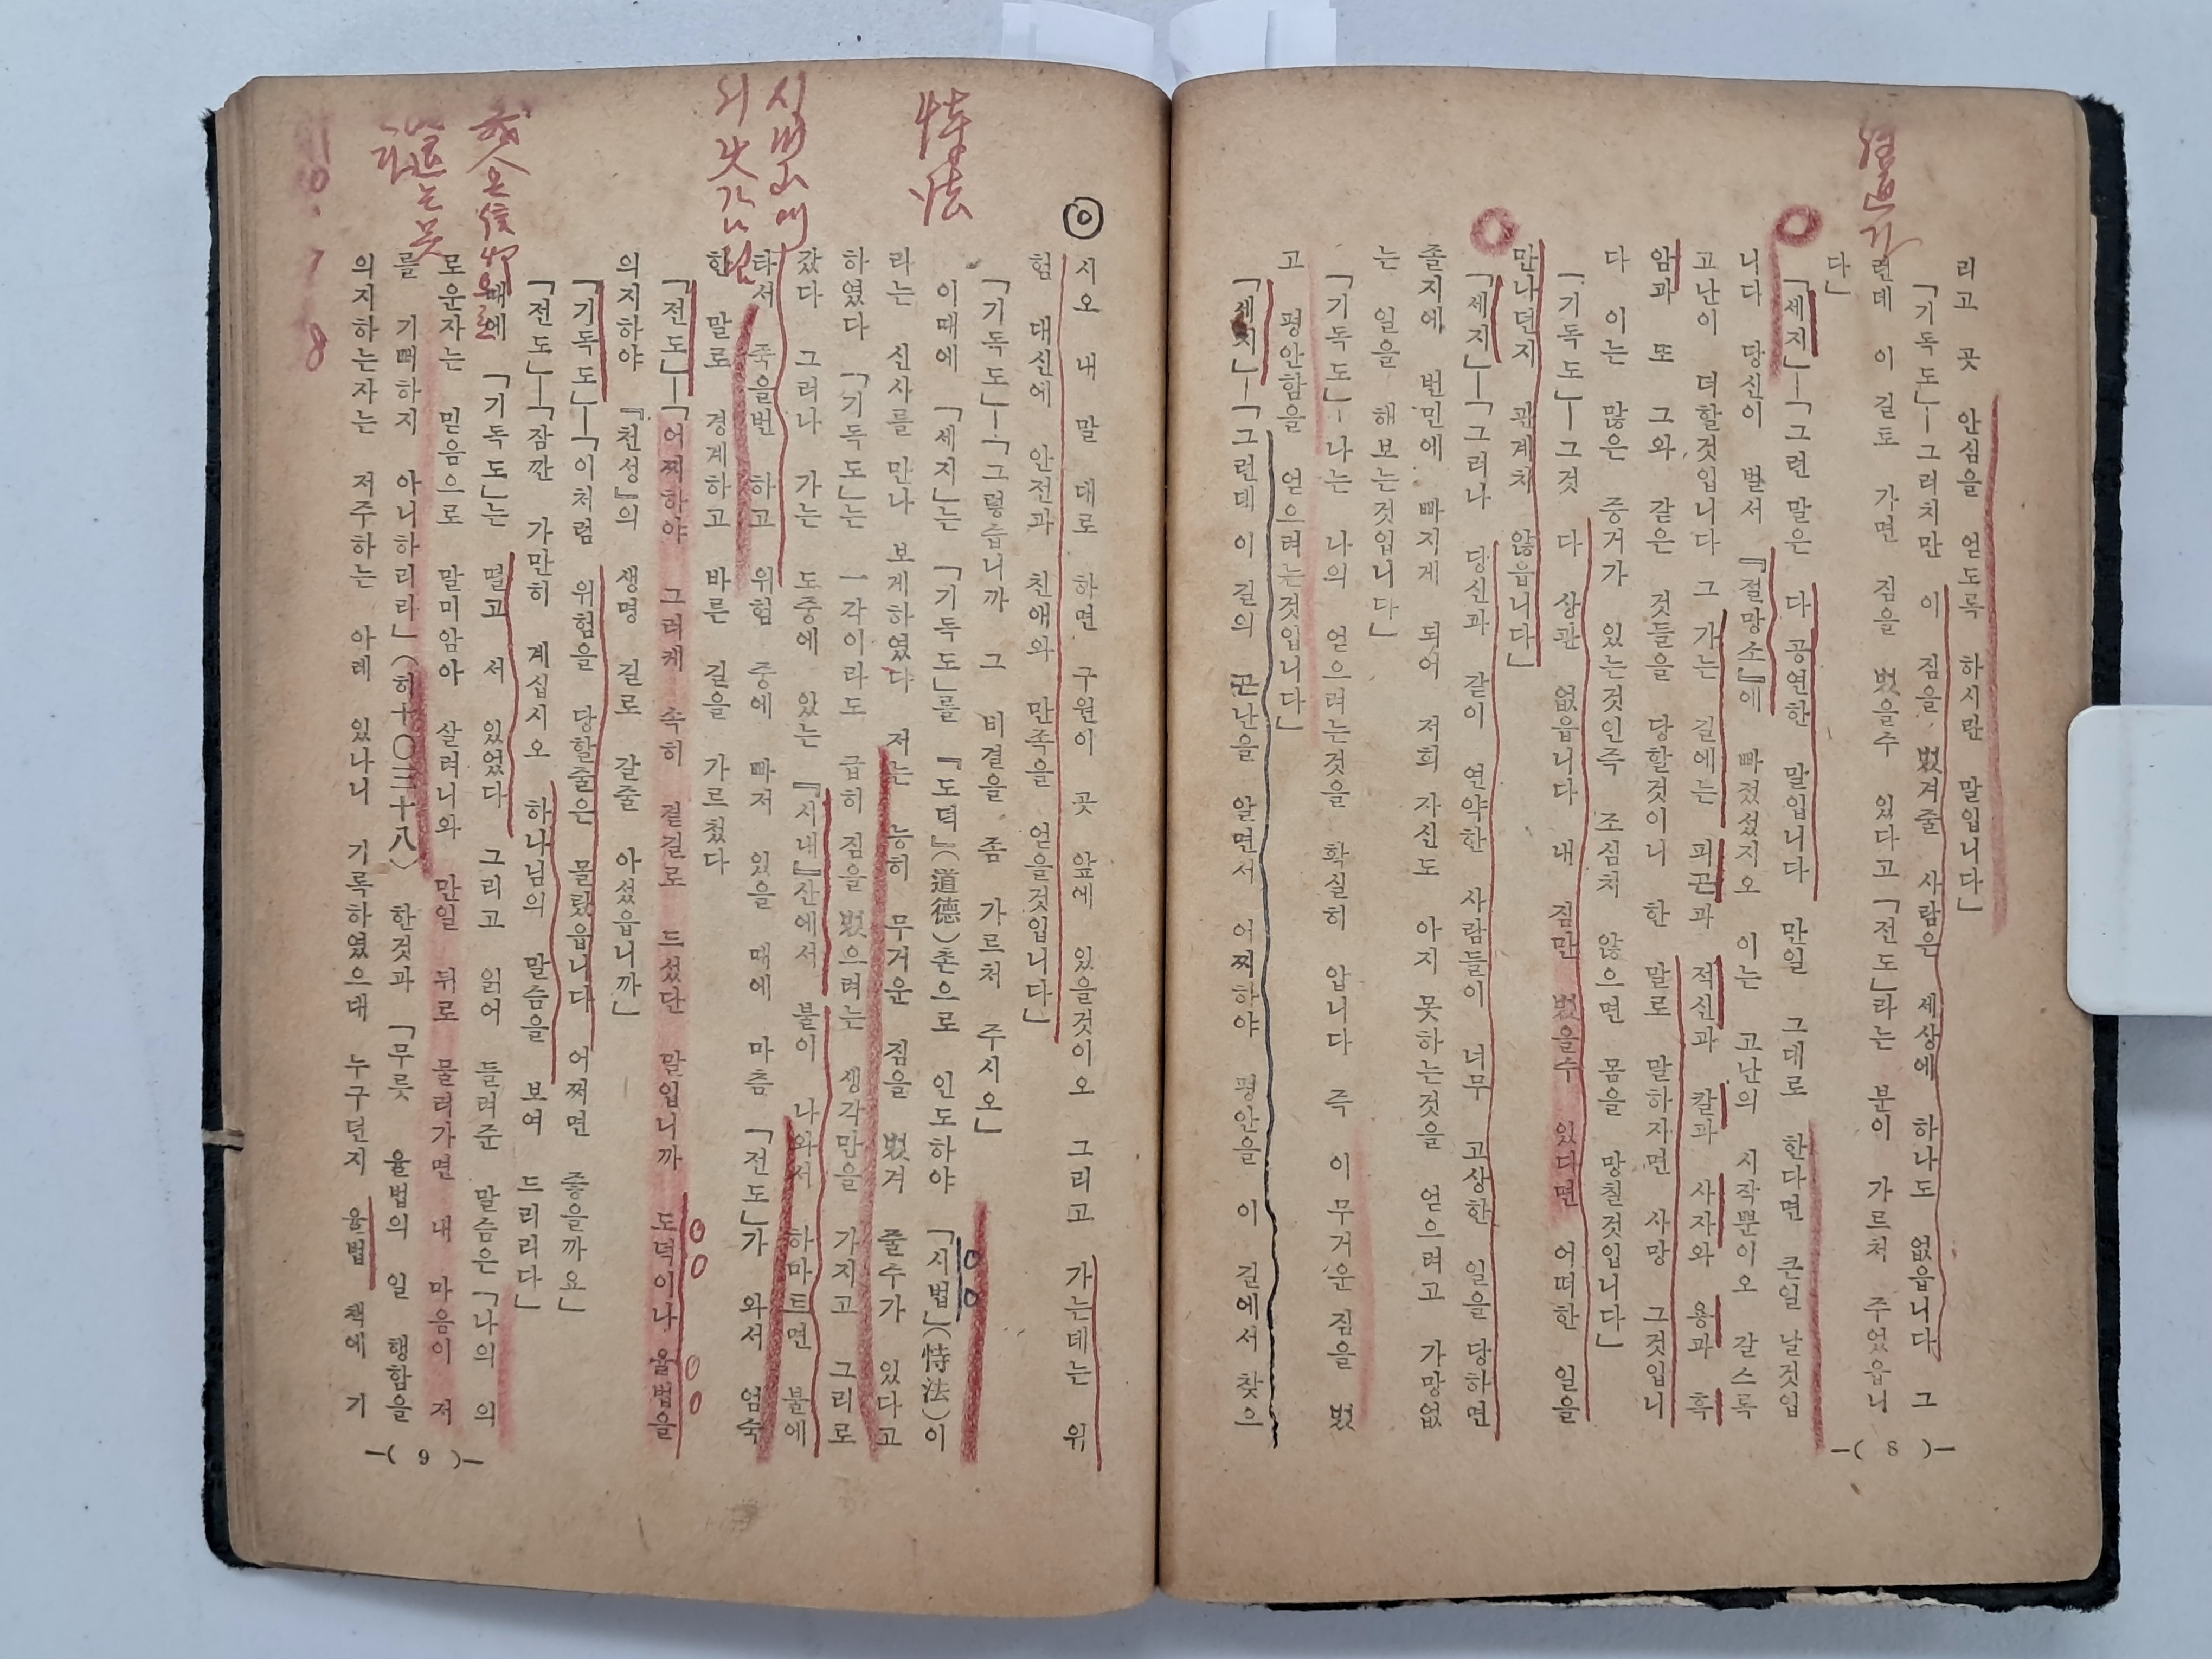 리고 곳 안심을 얻도록 하시란 말입니다」
「기독도」―그러치만 이 짐을 벘겨줄 사람은 세상에 하나도 없읍니다 그
런데 이 길로 가면 짐을 벘을수 있다고「전도」라는 분이 가르처 주었읍니
다」
「세지」―「그런 말은 다 공연한 말입니다 만일 그대로 한다면 큰일 날것입
니다 당신이 벌서 『절망소』에 빠젔섰지오 이는 고난의 시작뿐이오 갈스록
고난이 더할것입니다 그 가는 길에는 피곤과 적신과 칼과 사자와 용과 흑
암과 또 그와 같은 것들을 당할것이니 한 말로 말하자면 사망 그것입니
다 이는 많은 증거가 있는것인즉 조심치 않으면 몸을 망칠것입니다」
「기독도」―그것 다 상관 없읍니다 내 짐만 벘을수 있다면 어떠한 일을
만나던지 관계치 않읍니다」
「세지」―「그러나 당신과 같이 연약한 사람들이 너무 고상한 일을 당하면
졸지에 번민에 빠지게 되어 저희 자신도 아지 못하는것을 얻으려고 가망없
는 일을 해보는것입니다」
「기독도」―나는 나의 얻으려는것을 확실히 압니다 즉 이 무거운 짐을 벘
고 평안함을 얻으려는것입니다」
「세지」―「그런데 이 길의 곤난을 알면서 어찌하야 평안을 이 길에서 찾으
시오 내 말 대로 하면 구원이 곳 앞에 있을것이오 그리고 가는데는 위
험 대신에 안전과 친애와 만족을 얻을것입니다」
「기독도」―「그렇습니까 그 비결을 좀 가르처 주시오」
이때에 「세지」는 「기독도」를 『도덕』(道德)촌으로 인도하야 「시법」(恃法)이
라는 신사를 만나 보게하였다 저는 능히 무거운 짐을 벘겨 줄수가 있다고
하였다 「기독도」는 一각이라도 급히 짐을 벘으려는 생각만을 가지고 그리로
갔다 그러나 가는 도중에 있는 『시내』산에서 불이 나와서 하마트면 불에
타서 죽을번 하고 위험 중에 빠저 있을 때에 마츰 「전도」가 와서 엄숙
한 말로 경계하고 바른 길을 가르첬다
「전도」―「어찌하야 그러케 속히 곁길로 드섰단 말입니까 도덕이나 율법을
의지하야 『천성』의 생명 길로 갈줄 아섰읍니까」
「기독도」―「이처럼 위험을 당할줄은 몰랐읍니다 어쩌면 좋을까요」
「전도」―「잠깐 가만히 계십시오 하나님의 말슴을 보여 드리리다」
때에 「기독도」는 떨고 서 있었다 그리고 읽어 들려준 말슴은「나의 의
로운자는 믿음으로 말미암아 살려니와 만일 뒤로 물러가면 내 마음이 저
를 기뻐하지 아니하리라」(히十〇三十八) 한것과 「무릇 율법의 일 행함을
의지하는자는 저주하는 아레 있나니 기록하였으대 누구던지 율법 책에 기
―( 8 )―
―( 9 )―
恃法
시내山에